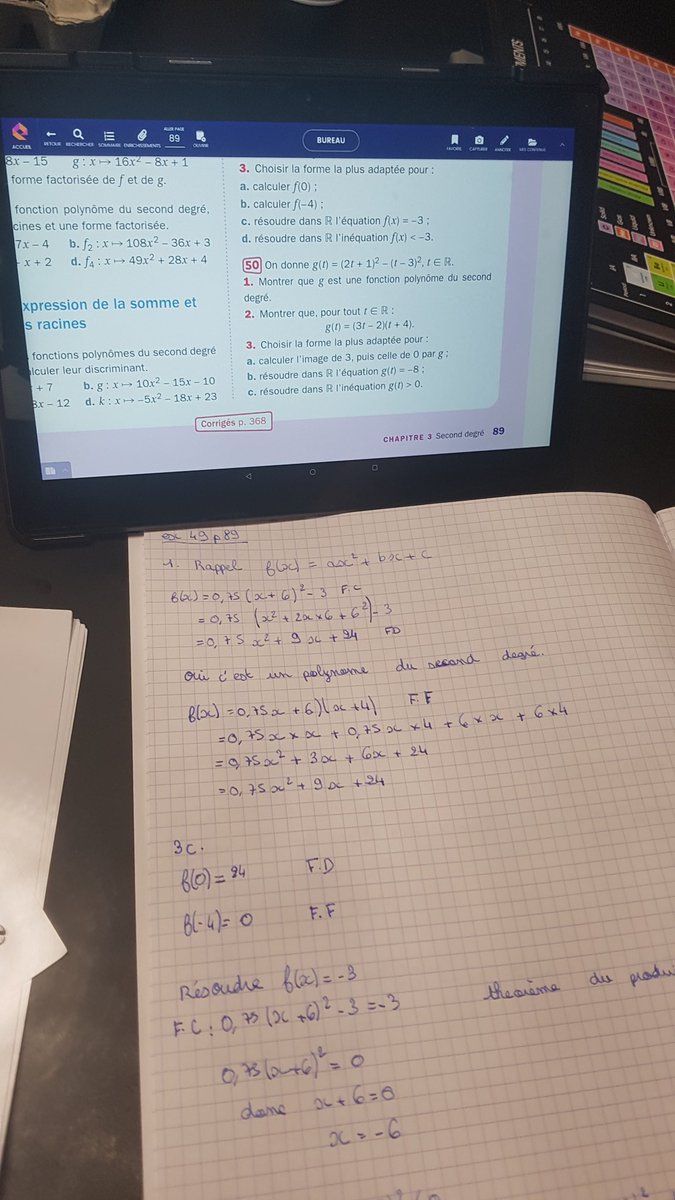 ACCUEIL
RETOUR
RECHERCHER
SOMMAIRE
ENRICHISSEMENTS
ALLER PAGE
89
OUVRIR
BUREAU
FAVORIS
CAPTURER
ANNOTER
MES CONTENUS
8x – 15 g : x ↦ 16x² – 8x + 1
forme factorisée de f et de g.
fonction polynôme du second degré,
cines et une forme factorisée.
7x – 4 b. f₂ : x ↦ 108x² – 36x + 3
x + 2 d. f₄ : x ↦ 49x² + 28x + 4
xpression de la somme et
s racines
fonctions polynômes du second degré
lculer leur discriminant.
+ 7 b. g : x ↦ 10x² – 15x – 10
8x – 12 d. k : x ↦ –5x² – 18x + 23
Corrigés p. 368
3. Choisir la forme la plus adaptée pour :
a. calculer f(0) ;
b. calculer f(–4) ;
c. résoudre dans ℝ l'équation f(x) = –3 ;
d. résoudre dans ℝ l'inéquation f(x) < –3.
50 On donne g(t) = (2t + 1)² – (t – 3)², t ∈ ℝ.
1. Montrer que g est une fonction polynôme du second
degré.
2. Montrer que, pour tout t ∈ ℝ :
g(t) = (3t – 2)(t + 4).
3. Choisir la forme la plus adaptée pour :
a. calculer l'image de 3, puis celle de 0 par g ;
b. résoudre dans ℝ l'équation g(t) = –8 ;
c. résoudre dans ℝ l'inéquation g(t) > 0.
CHAPITRE 3 Second degré 89
ex 49 p 89
1. Rappel f(x) = ax² + bx + c
f(x) = 0,75 (x + 6)² – 3 F.C
= 0,75 (x² + 2x × 6 + 6²) – 3
= 0,75 x² + 9 x + 24 FD
oui c'est un polynome du second degré.
f(x) = 0,75x + 6)(x + 4) F.F
= 0,75 x × x + 0,75 x × 4 + 6 × x + 6 × 4
= 0,75x² + 3x + 6x + 24
= 0,75x² + 9x + 24
3c.
f(0) = 24 F.D
f(-4) = 0 F.F
Résoudre f(x) = -3
F.C : 0,75 (x + 6)² - 3 = -3 theorème du produi
0,75(x+6)² = 0
donc x + 6 = 0
x = -6